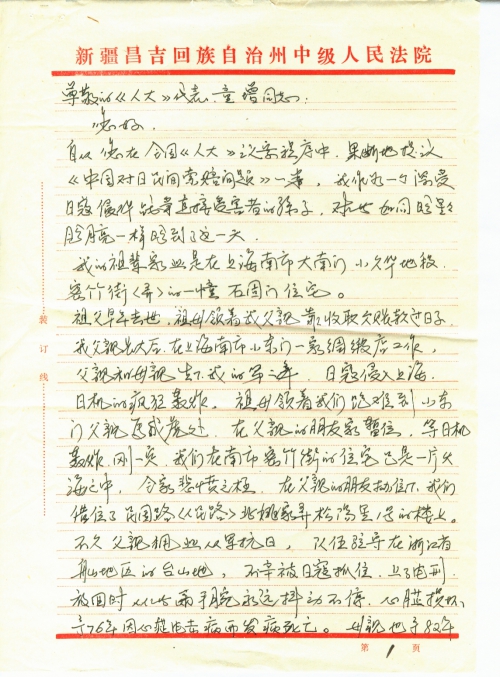 新疆昌吉回族自治州中级人民法院
尊敬的《人大》代表、童增同志：
您好，
自从您在全国《人大》议案程序中，果断地提议
《中国对日民间索赔问题》一案，我作为一个深受
日寇侵华战争直接受害者的孩子，
盼月亮一样盼到了这一天．
我的祖辈家业是在上海南市大南门小九华地段
篾竹街〈弄〉的一幢石固门住宅。
祖父早年去世，祖母领着我父亲靠收取欠账款过日子，
我父亲长大后，在上海南市小东门一家绸缎店工作，
父亲和母亲生下我的第二年，日寇侵入上海，
日机的疯狂轰炸，祖母领着我们跑难到小东
门父亲店成落处，在父亲的朋友家暂住，等日机
轰炸刚一完，我们在南市篾竹街的住宅已是一片火
海之中，全家悲愤之极，在父亲的朋友扔住下，我们
借住了民国路《人民路》北姚家弄松海里号的楼上。
不久父亲捐业从军抗日，队伍驻守在浙江省
舟山地区的台山地，不幸被日寇抓住，上了电刑，
放回时从此两手腕永远抖动不停，心脏损坏，
于76年因心脏电击病而发病死亡。母亲也于82年
装订线
第1页